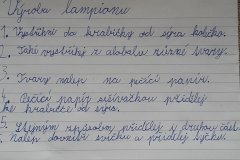 Výroba lampianu
1. Vystřihni do krabičky od sýra kolečko.
2. Také vystřihej z alobalu různé tvary.
3. Tvary nalep na pečící papír.
4. Pečící papír sešívačkou přidělej
ke krabičce od sýra.
5. Stejným způsobem přidělej i druhou část.
Nalep dovnitř svíčku a přidělej tyčku.